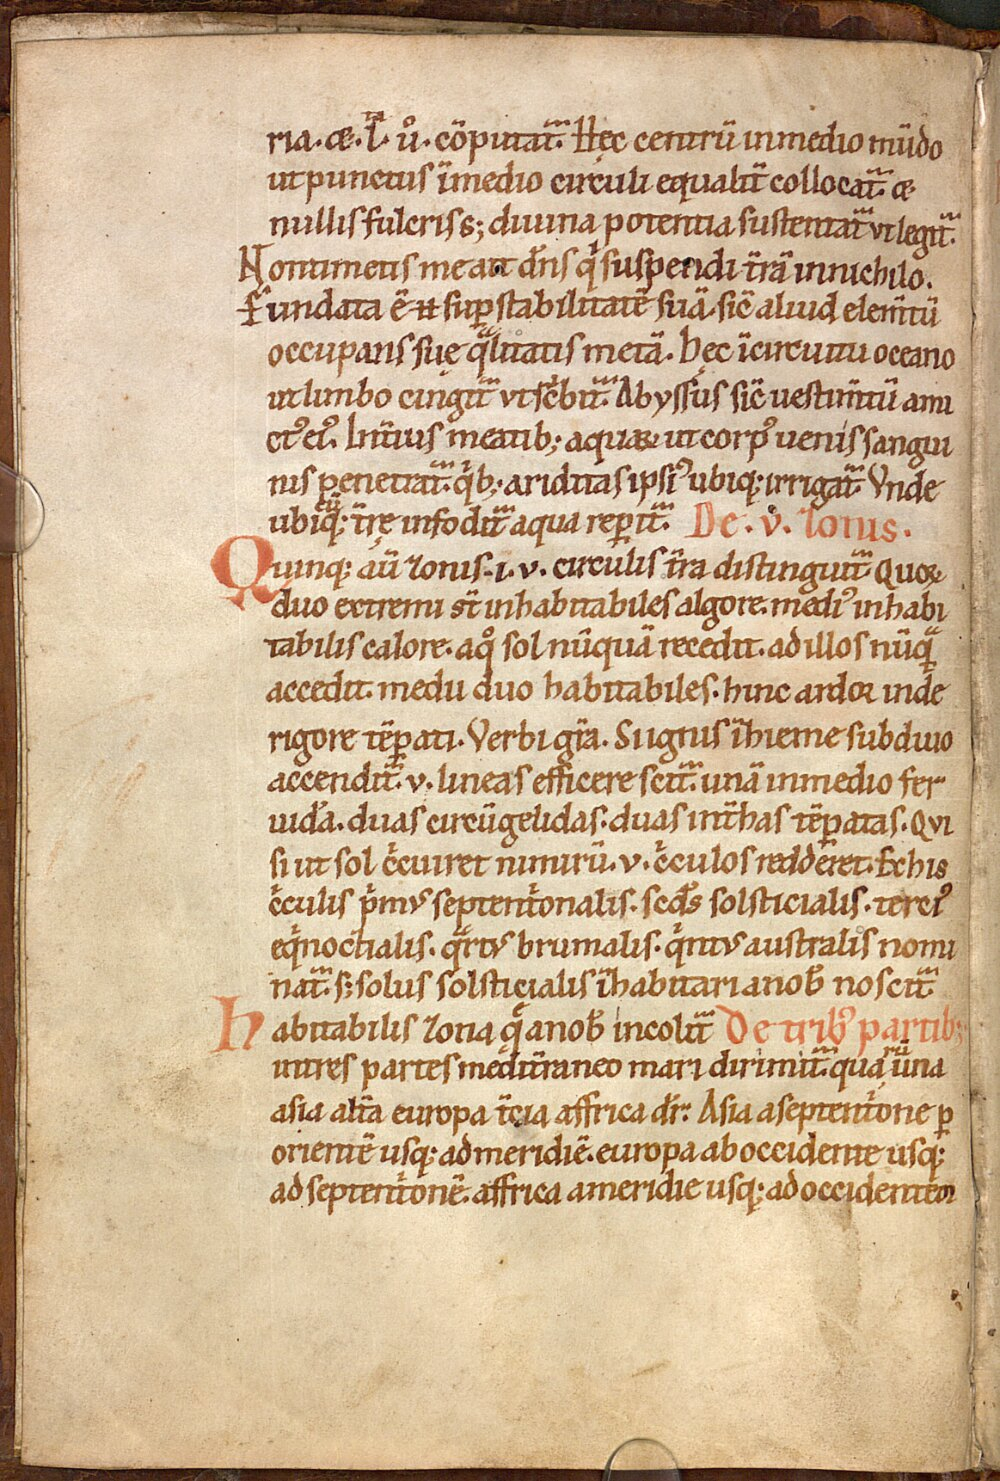 ria. æ. l̅. u̾. cōputat᷑. Hęc centrū inmedio mūdo
ut punctus īmedio circuli equalit̄ collocat᷑. æ
nullis fulcris s; diuina potentia sustentat᷑ vt legit᷑.
Non timetis me ait dn̄s qͥ suspendi t̄rā innichilo.
Fundata ē ⁊ sup̄ stabilitatē suā. sic̄ aliud elem̄tū
occupans suę qͣlitatis metā. hęc īcircuitu oceano
ut limbo cingit᷑ vt sc̄bit᷑. Abyssus sic̄ uestim̄tū ami
ctꝰ eiꝰ. Int̄ius meatib; aquaꝝ ut corpꝰ uenis sangui
nis penetrat᷑. qͥb; ariditas ipsiꝰ ubiq; irrigat᷑. Vnde
ubicūq; t̄rę infodit᷑ aqua rep̄it᷑. De. v. zonis.
Quinq; aū zonis .i. v. circulis t̄ra distinguit᷑. Quoꝝ
duo extremi st̄ inhabitabiles algore. mediꝰ inhabi
tabilis calore. a qͦ sol nūquā recedit. ad illos nūqͣ
accedit. medii duo habitabiles. hinc ardore inde
rigore tēꝑati. Verbi gr̄a. Si ignis īhieme subdiuo
accendit᷑. v. lineas efficere scit᷑. unā inmedio fer
uidā. duas circūgelidas. duas int̄ has tēꝑatas. Qui
si ut sol c̄cuiret nimirū. v. c̄culos redderet. Ex his
c̄culis pͥmꝰ septent̄onalis. scd̄s solsticialis. terciꝰ
eqͥnoctialis. qͣrtꝰ brumalis. qͥntꝰ australis nomi
nat᷑. s; solus solsticialis īhabitari a nob̄ noscit᷑
habitabilis zona qͣ a nob̄ incolit᷑ De tribꝰ partib;
intres partes medit̄raneo mari dirimit᷑. quarū una
asia alt̄a europa t̄cia affrica dr̄. Asia a septent̄one ꝑ
orientē usq; ad meridiē. europa ab occidente usq;
ad septent̄onē. affrica a meridie usq; ad occidentem